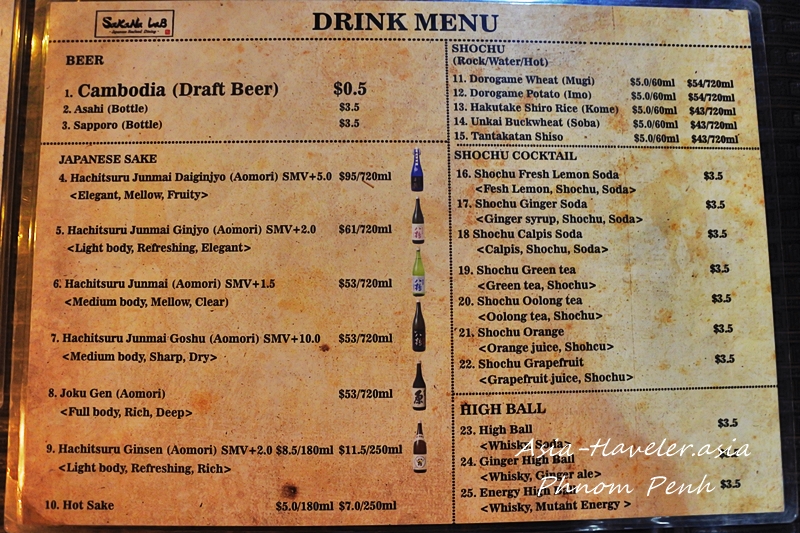 SaKaNa LaB
-Japanese Seafood Dining-
DRINK MENU
BEER
1. Cambodia (Draft Beer) $0.5
2. Asahi (Bottle) $3.5
3. Sapporo (Bottle) $3.5
JAPANESE SAKE
4. Hachitsuru Junmai Daiginjyo (Aomori) SMV+5.0 $95/720ml
<Elegant, Mellow, Fruity>
5. Hachitsuru Junmai Ginjyo (Aomori) SMV+2.0 $61/720ml
<Light body, Refreshing, Elegant>
6. Hachitsuru Junmai (Aomori) SMV+1.5 $53/720ml
<Medium body, Mellow, Clear)
7. Hachitsuru Junmai Goshu (Aomori) SMV+10.0 $53/720ml
<Medium body, Sharp, Dry>
8. Joku Gen (Aomori) $53/720ml
<Full body, Rich, Deep>
9. Hachitsuru Ginsen (Aomori) SMV+2.0 $8.5/180ml $11.5/250ml
<Light body, Refreshing, Rich>
10. Hot Sake $5.0/180ml $7.0/250ml
SHOCHU
(Rock/Water/Hot)
11. Dorogame Wheat (Mugi) $5.0/60ml $54/720ml
12. Dorogame Potato (Imo) $5.0/60ml $54/720ml
13. Hakutake Shiro Rice (Kome) $5.0/60ml $43/720ml
14. Unkai Buckwheat (Soba) $5.0/60ml $43/720ml
15. Tantakatan Shiso $5.0/60ml $43/720ml
SHOCHU COCKTAIL
16. Shochu Fresh Lemon Soda $3.5
<Fesh Lemon, Shochu, Soda>
17. Shochu Ginger Soda $3.5
<Ginger syrup, Shochu, Soda>
18 Shochu Calpis Soda $3.5
<Calpis, Shochu, Soda>
19. Shochu Green tea $3.5
<Green tea, Shochu>
20. Shochu Oolong tea $3.5
<Oolong tea, Shochu>
21. Shochu Orange $3.5
<Orange juice, Shohcu>
22. Shochu Grapefruit $3.5
<Grapefruit juice, Shochu>
HIGH BALL
23. High Ball $3.5
<Whisky, Soda>
24. Ginger High Ball $3.5
<Whisky, Ginger ale>
25. Energy High Ball $3.5
<Whisky, Mutant Energy >
Asia-traveler.asia
Phnom Penh